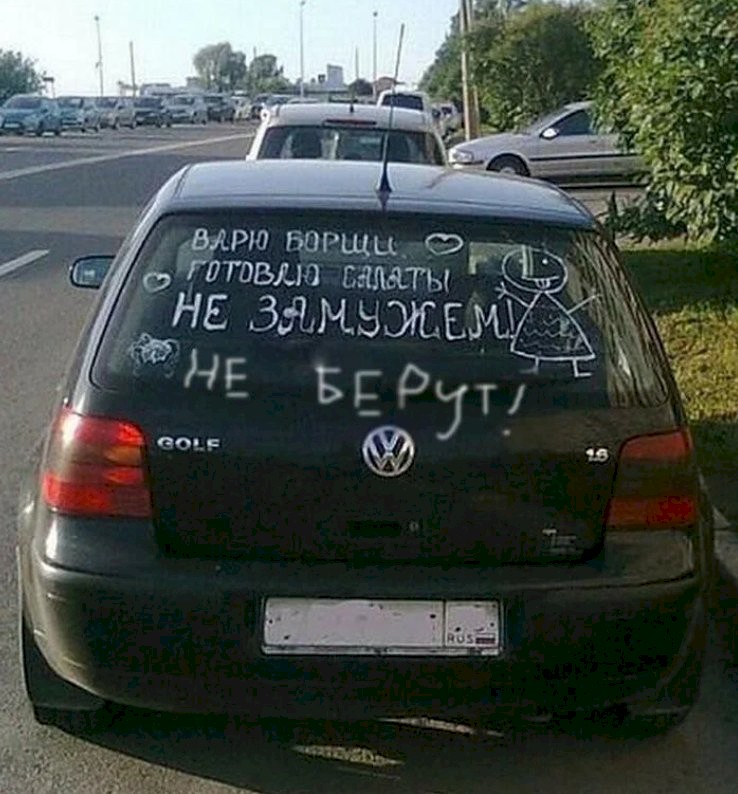 ВАРЮ БОРЩИ
ГОТОВЛЮ САЛАТЫ
НЕ ЗАМУЖЕМ!
НЕ БЕРУТ!
GOLF
1.6
RUS